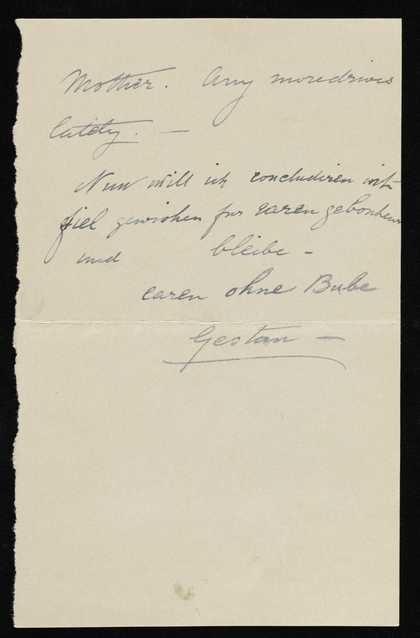 Mother. Any more drives
lately. —
Nun will ich concludiren mit
fiel gewishen fur earen gebonheim
und bleibe –
earen ohne Bube
Gestan —